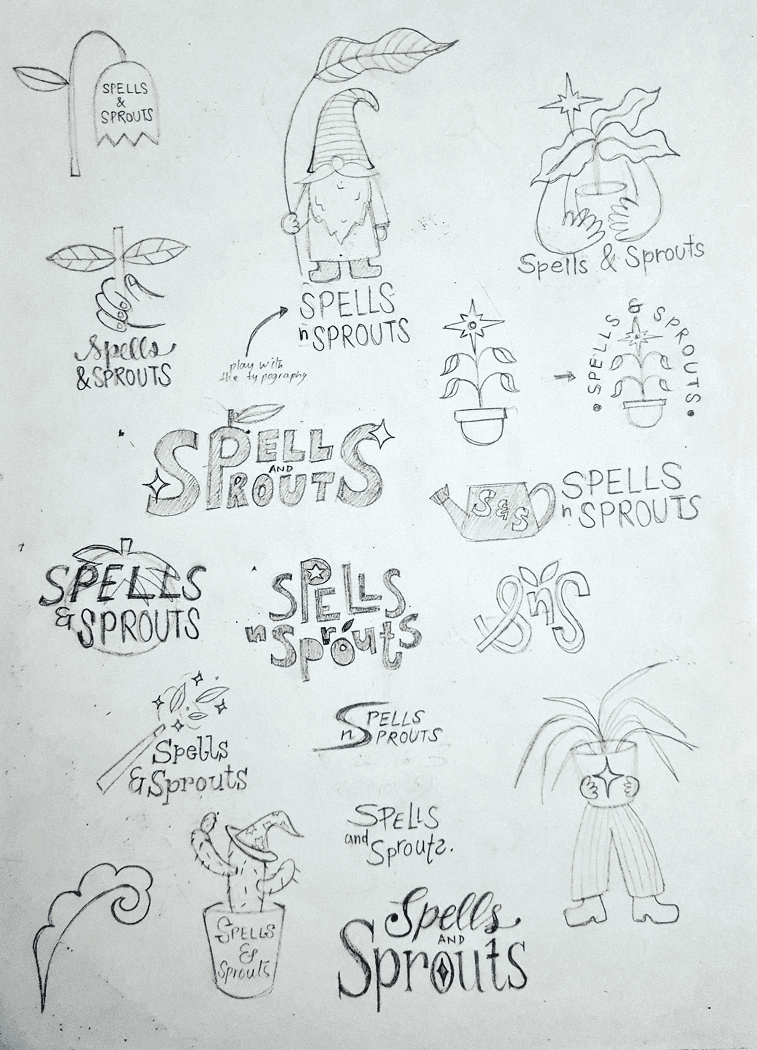 SPELLS
&
SPROUTS
Spells & Sprouts
Spells
& SPROUTS
SPELLS
n SPROUTS
play with
the typography
SPELLS & SPROUTS
SPELLS
AND
SPROUTS
S&S
SPELLS
n SPROUTS
SPELLS
& SPROUTS
SPELLS
n Sprouts
SnS
Spells
& Sprouts
SPELLS
n SPROUTS
SPELLS
and Sprouts.
SPELLS
&
Sprouts
Spells
AND
Sprouts